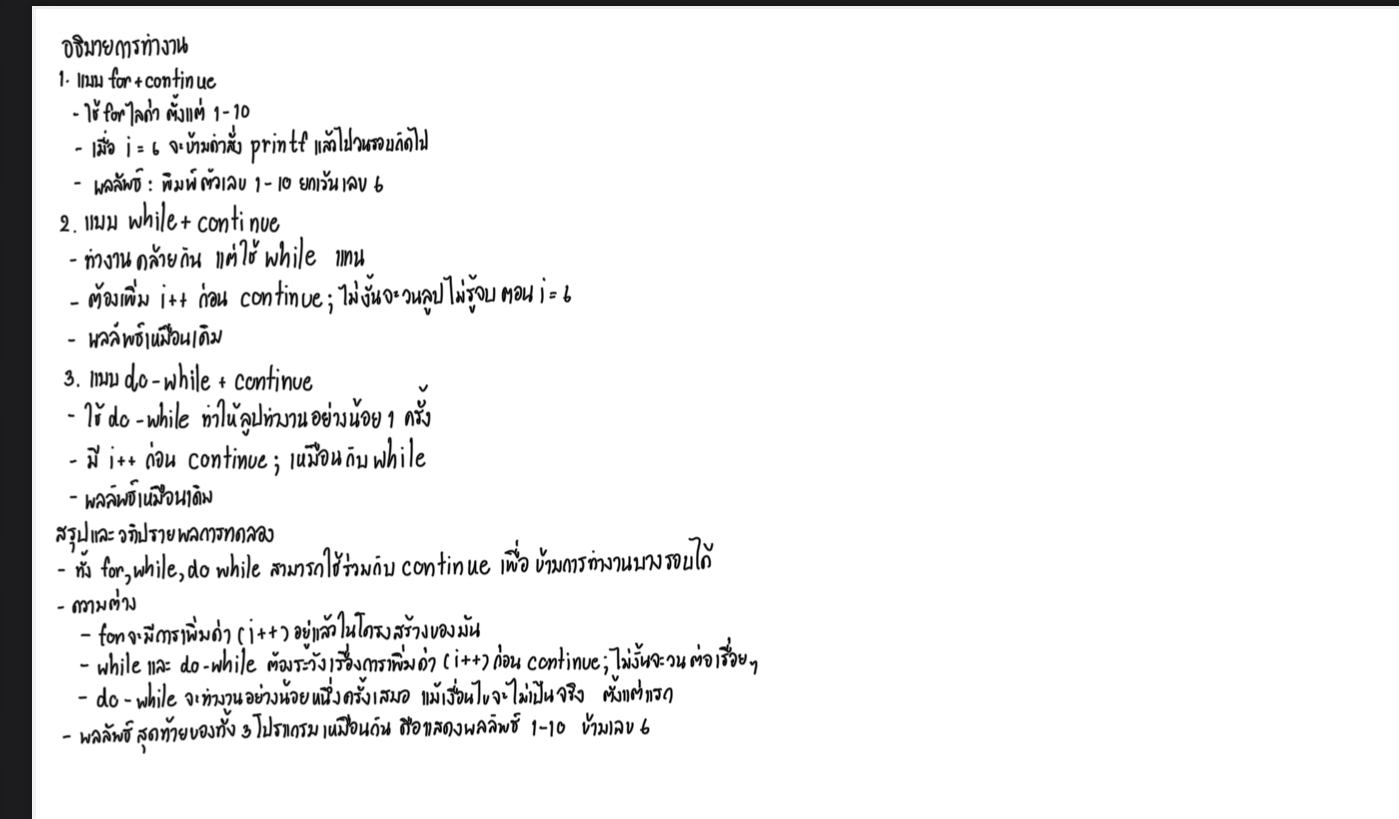 อธิบายการทำงาน
1. แบบ for+continue
- ใช้ for ไล่ค่า ตั้งแต่ 1-10
- เมื่อ i = 6 จะข้ามคำสั่ง printf แล้วไปวนรอบถัดไป
- ผลลัพธ์ : พิมพ์ตัวเลข 1-10 ยกเว้นเลข 6
2. แบบ while+ continue
- ทำงานคล้ายกัน แต่ใช้ while แทน
- ต้องเพิ่ม i++ ก่อน continue; ไม่งั้นจะวนลูปไม่รู้จบ ตอน i = 6
- ผลลัพธ์เหมือนเดิม
3. แบบ do-while + continue
- ใช้ do-while ทำให้ลูปทำงานอย่างน้อย 1 ครั้ง
- มี i++ ก่อน continue; เหมือนกับ while
- ผลลัพธ์เหมือนเดิม
สรุปและอภิปรายผลการทดลอง
- ทั้ง for, while, do while สามารถใช้ร่วมกับ continue เพื่อ ข้ามการทำงานบางรอบได้
- ความต่าง
- for จะมีการเพิ่มค่า (i++) อยู่แล้วในโครงสร้างของมัน
- while และ do-while ต้องระวังเรื่องการเพิ่มค่า (i++) ก่อน continue; ไม่งั้นจะวน ต่อเรื่อยๆ
- do-while จะทำงานอย่างน้อยหนึ่งครั้งเสมอ แม้เงื่อนไขจะไม่เป็นจริง ตั้งแต่แรก
- ผลลัพธ์สุดท้ายของทั้ง 3 โปรแกรมเหมือนกัน คือแสดงผลลัพธ์ 1-10 ข้ามเลข 6